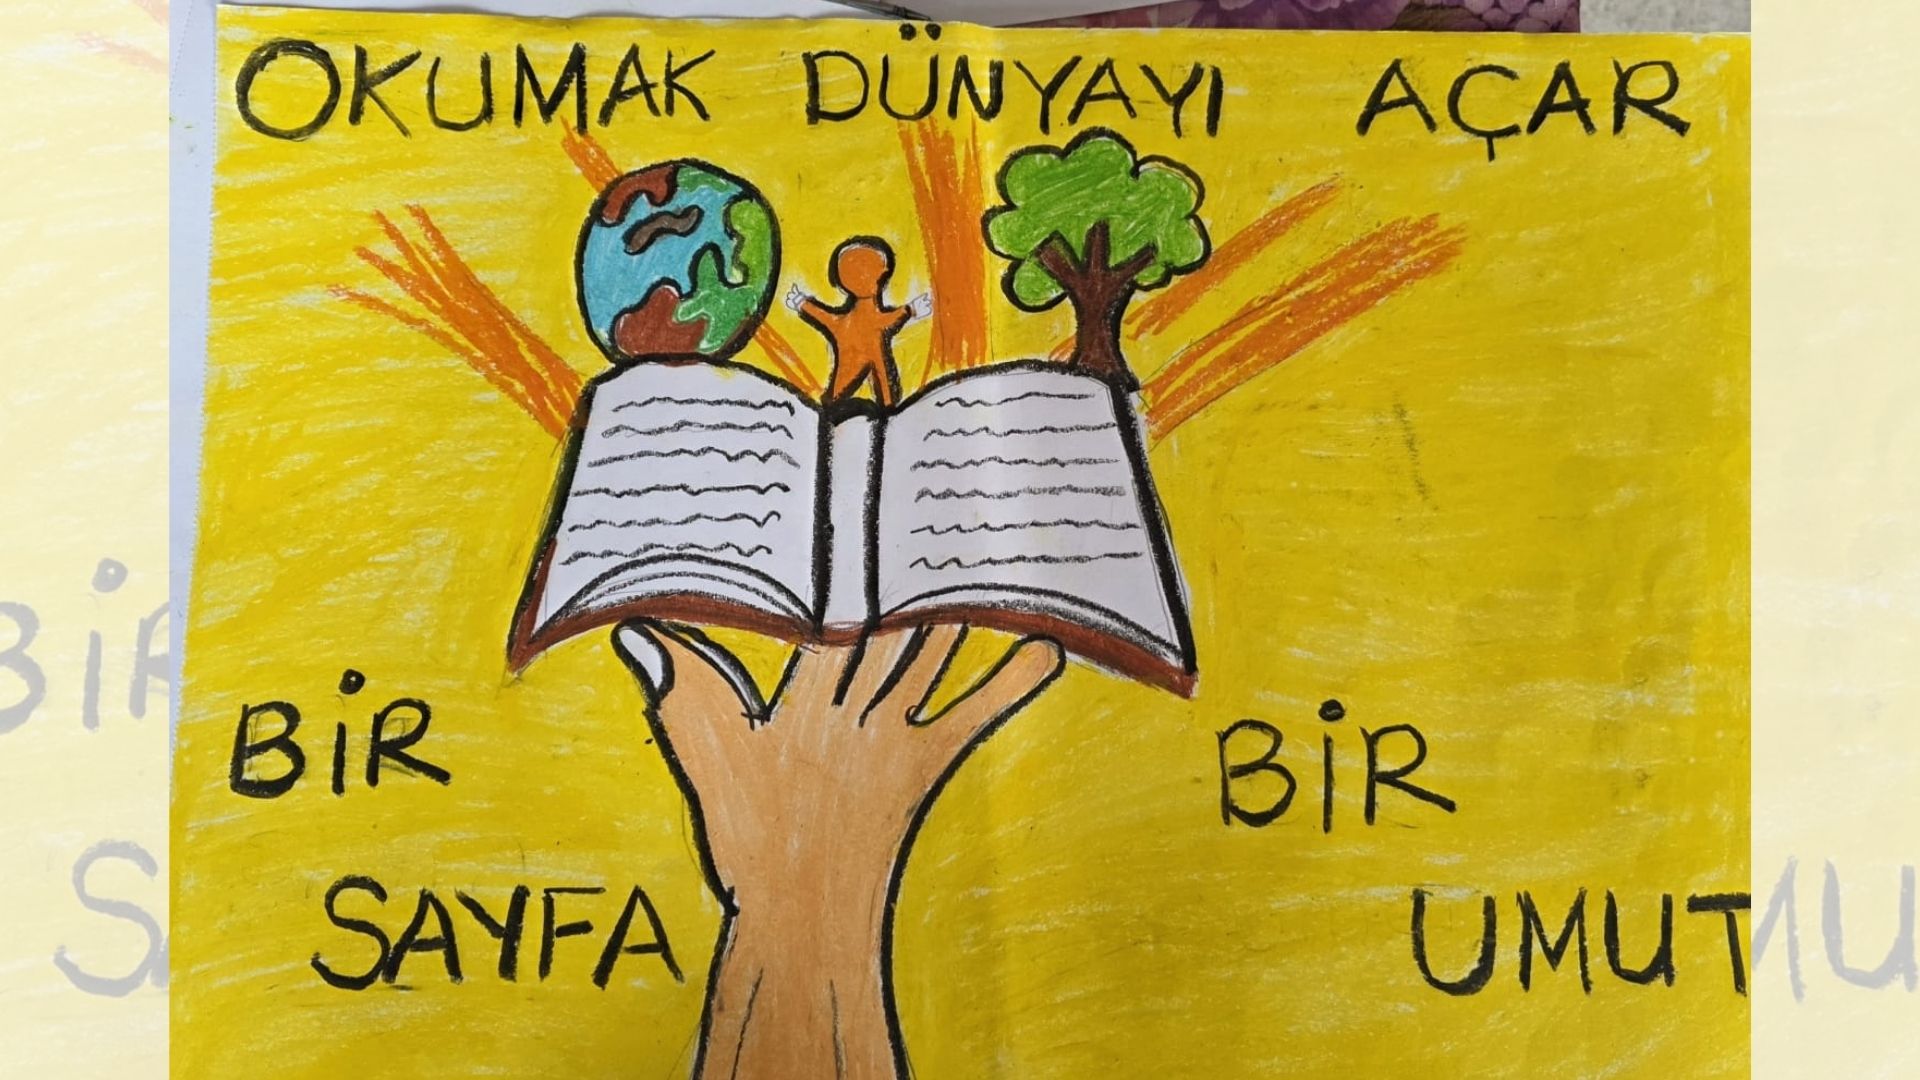 OKUMAK DÜNYAYI AÇAR
BİR
SAYFA
BİR
UMUT